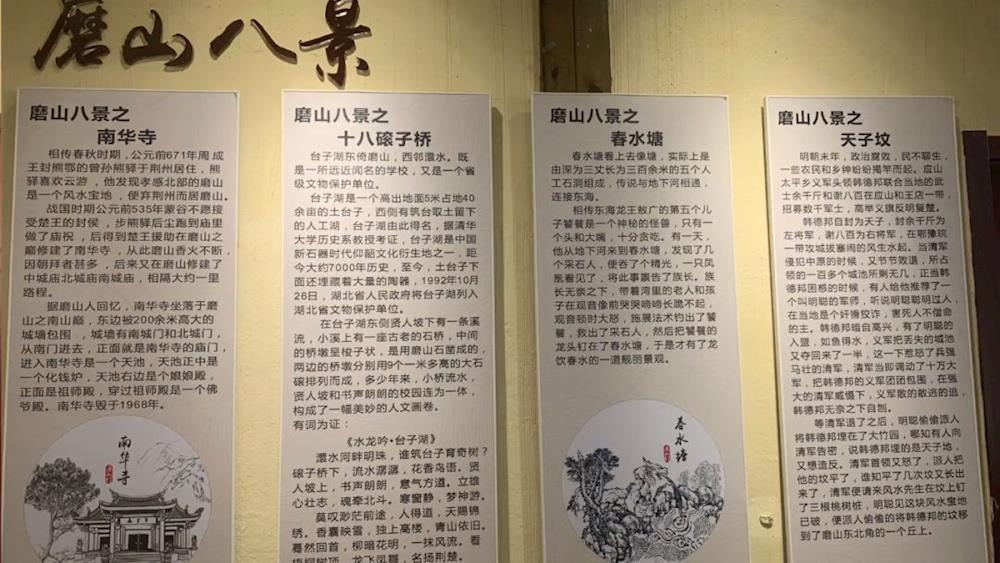 磨山八景
磨山八景之
南华寺
相传春秋时期，公元前671年周 成
王封熊鄂的曾孙熊驿于荆州居住，熊
驿喜欢云游 ，他发现孝感北部的磨山
是一个风水宝地 ，便弃荆州而居磨山。
战国时期公元前535年蒙谷不愿接
受楚王的封侯，步熊驿后尘跑到庙里
做了庙祝 ，后得到楚王援助在磨山之
巅修建了南华寺 ，从此磨山香火不断，
因朝拜者甚多 ，后来又在磨山修建了
中城庙北城庙南城庙 ，相隔大约一里
路程。
据磨山人回忆，南华寺坐落于磨
山之南山巅，东边被200余米高大的
城墙包围 ，城墙有南城门和北城门，
从南门进去，正面就是南华寺的庙门，
进入南华寺是一个天池，天池正中是
一个化钱炉，天池右边是个娘娘殿，
正面是祖师殿，穿过祖师殿是一个佛
爷殿。南华寺毁于1968年。
南华寺
磨山八景之
十八磙子桥
台子湖东倚磨山，西邻澴水。既
是一所远近闻名的学校，又是一个省
级文物保护单位。
台子湖是一个高出地面5米占地40
余亩的土台子，西侧有筑台取土留下
的人工湖，台子湖由此得名，据清华
大学历史系教授考证，台子湖是中国
新石器时代仰韶文化衍生地之一，距
今大约7000年历史，至今，土台子下
面还埋藏着大量的陶器，1992年10月
26日，湖北省人民政府将台子湖列入
湖北省文物保护单位。
在台子湖东侧贤人坡下有一条溪
流，小溪上有一座古老的石桥，中间
的桥墩呈梭子状，是用磨山石凿成的，
两边的桥墩分别用9个一米多高的大石
磙排列而成，多少年来，小桥流水，
贤人坡和书声朗朗的校园连为一体，
构成了一幅美妙的人文画卷。
有词为证：
《水龙吟·台子湖》
澴水河畔明珠，谁筑台子育奇树？
磙子桥下，流水潺潺，花香鸟语。贤
人坡上，书声朗朗，意气方遒。立雄
心壮志，魂牵北斗。寒窗静，梦神游。
莫叹渺茫前途，人得道，天赐锦
绣。香囊映雪，独上高楼，青山依旧。
蓦然回首，柳暗花明，一抹风流。看
梧桐树顶，龙飞凤舞，名扬荆楚。
磨山八景之
春水塘
春水塘看上去像塘，实际上是
由深为三丈长为三百余米的五个人
工石洞组成，传说与地下河相通，
连接东海。
相传东海龙王敖广的第五个儿
子饕餮是一个神秘的怪兽，只有一
个头和大嘴，十分贪吃。有一天，
他从地下河来到春水塘，发现了几
个采石人，便吞了个精光，一只凤
凰看见了，将此事禀告了族长。族
长无奈之下，带着湾里的老人和孩
子在观音像前哭哭啼啼长跪不起，
观音顿时大怒，施展法术钓出了饕
餮，救出了采石人，然后把饕餮的
龙头钉在了春水塘，于是才有了龙
饮春水的一道靓丽景观。
春水塘
磨山八景之
天子坟
明朝末年，政治腐败，民不聊生，
一些农民和乡绅纷纷揭竿而起。应山
太平乡义军头领韩德邦联合当地的武
士余千斤和谢八百在应山和王店一带，
招募数千军士，高举义旗反明复楚。
韩德邦自封为天子，封余千斤为
左将军，谢八百为右将军，在鄂豫皖
一带攻城拔寨闹的风生水起。当清军
侵犯中原的时候，又节节败退，所占
领的一百多个城池所剩无几，正当韩
德邦困惑的时候，有人给他推荐了一
个叫明聪的军师，听说明聪聪明过人，
在当地是个奸猾狡诈，害死人不偿命
的主。韩德邦暗自高兴，有了明聪的
入盟，如鱼得水，义军把丢失的城池
又夺回来了一半，这一下惹怒了兵强
马壮的清军，清军当即调动了十万大
军，把韩德邦的义军团团包围，在强
大的清军威慑下，义军散的散逃的逃，
韩德邦无奈之下自刎。
等清军退了之后，明聪偷偷派人
将韩德邦埋在了大竹园，哪知有人向
清军告密，说韩德邦埋的是天子地，
又想造反。清军首领又怒了，派人把
他的坟平了，谁知平了几次坟又长出
来了，清军便请来风水先生在坟上钉
了三根桃树桩，明聪见这块风水宝地
已破，便派人偷偷的将韩德邦的坟移
到了磨山东北角的一个丘上。